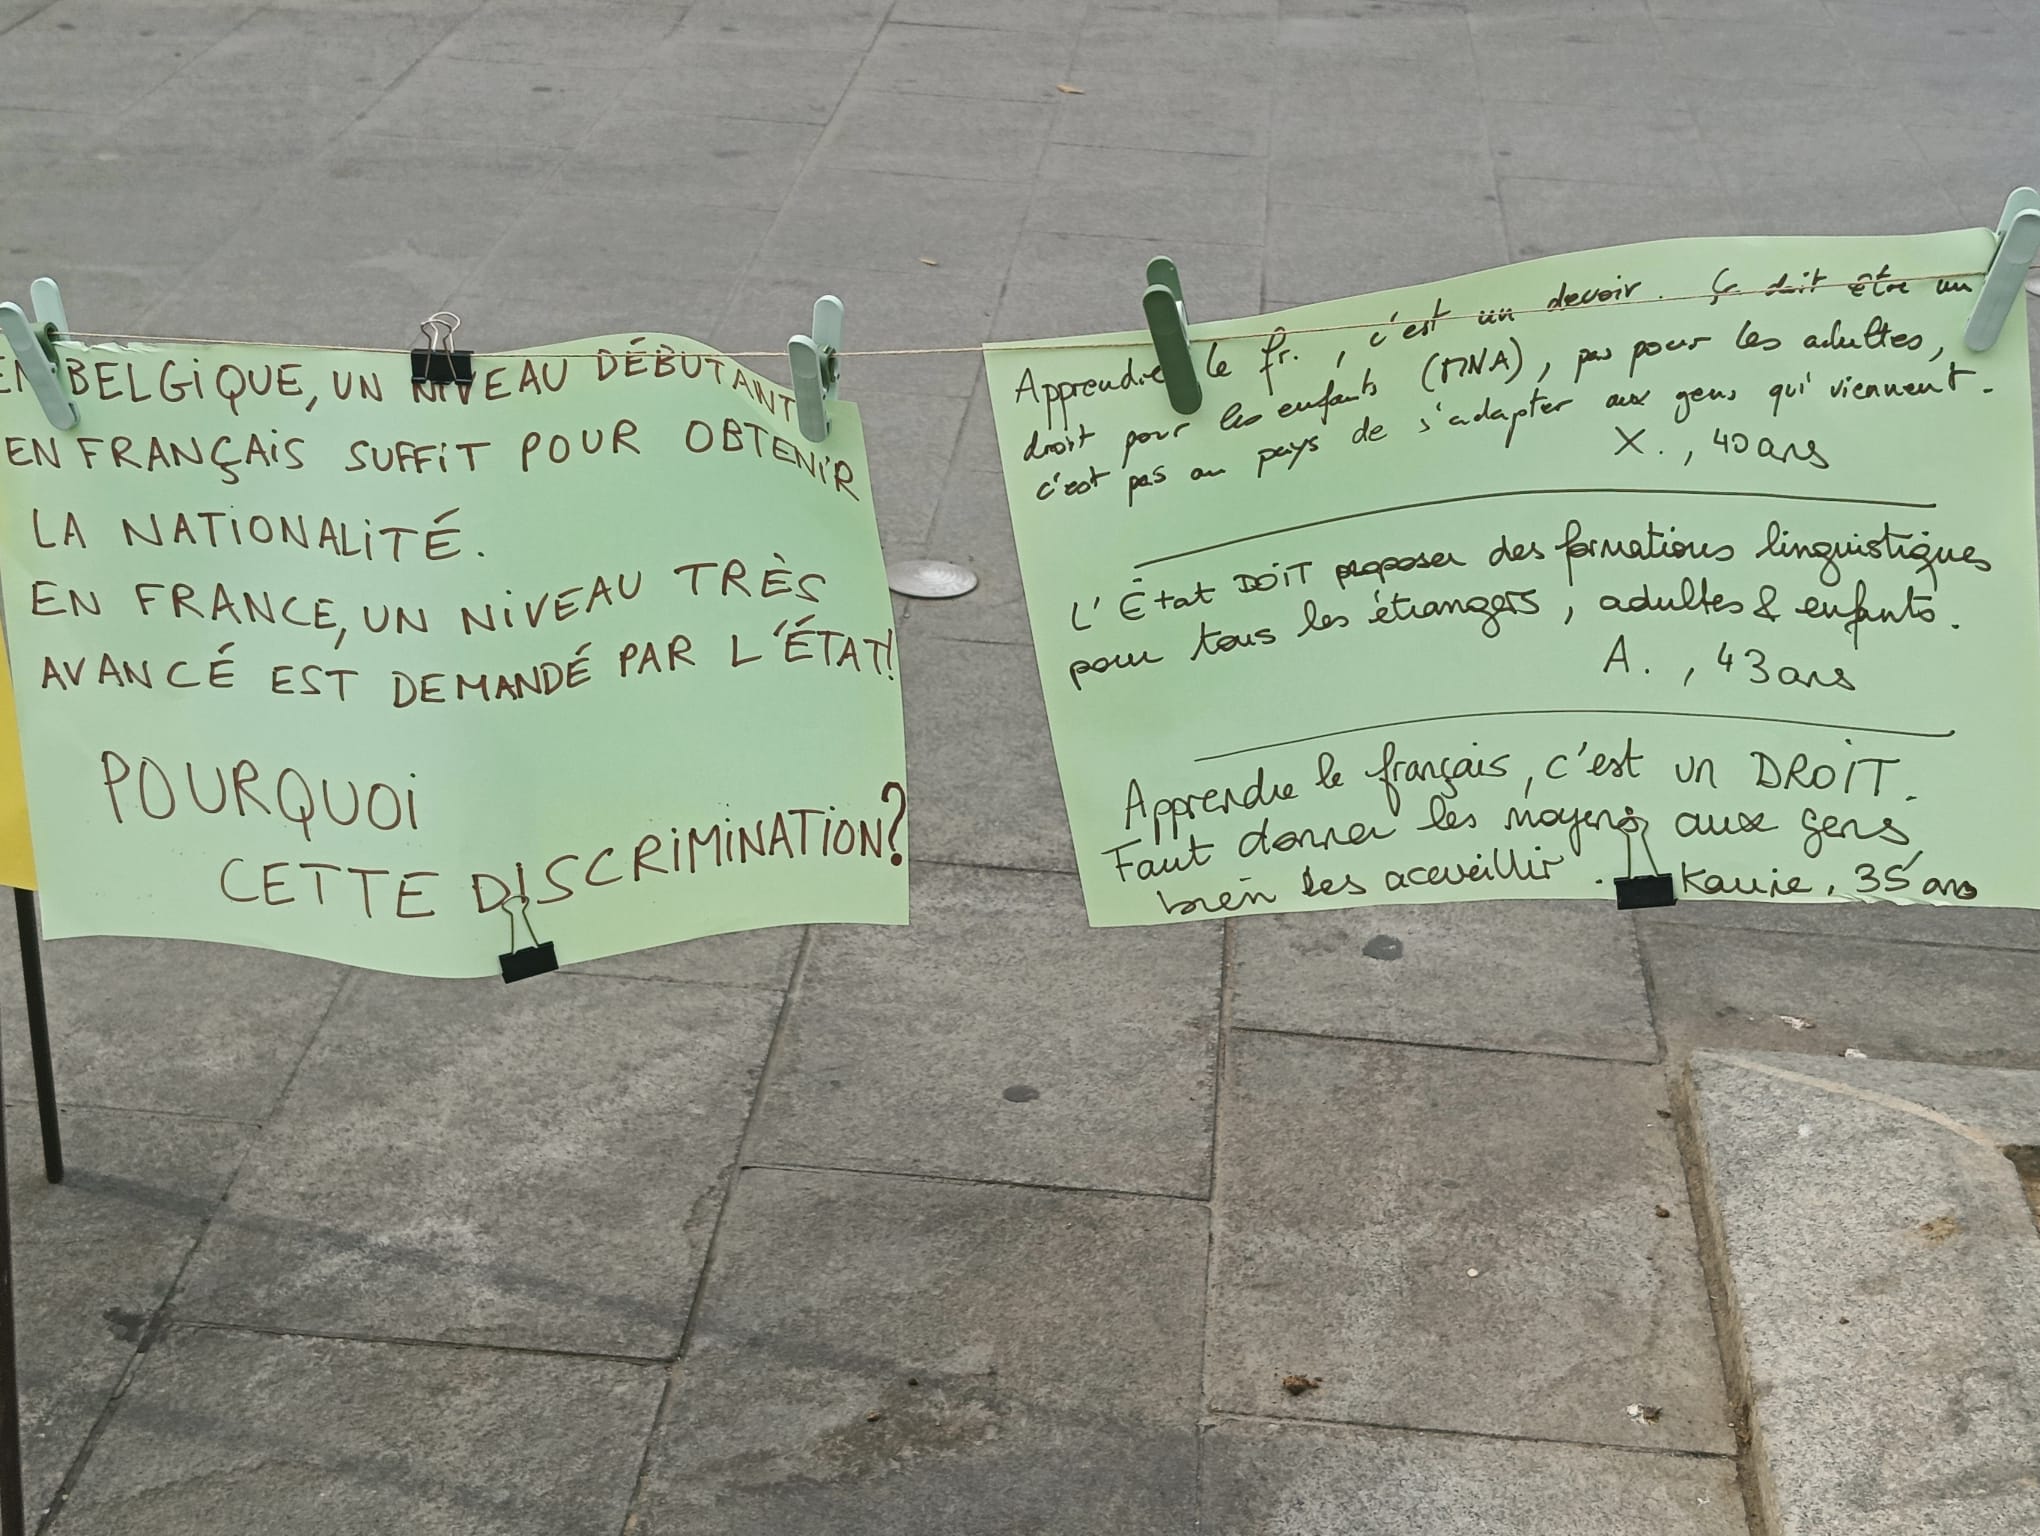 EN BELGIQUE, UN NIVEAU DÉBUTANT
EN FRANÇAIS SUFFIT POUR OBTENIR
LA NATIONALITÉ.
EN FRANCE, UN NIVEAU TRÈS
AVANCÉ EST DEMANDÉ PAR L'ÉTAT!
POURQUOI
CETTE DISCRIMINATION?
Apprendre le fr., c'est un devoir. Ça doit être un
droit pour les enfants (MNA), pas pour les adultes,
c'est pas au pays de s'adapter aux gens qui viennent.
X., 40 ans
L'État DOIT proposer des formations linguistiques
pour tous les étrangers, adultes & enfants.
A., 43 ans
Apprendre le français, c'est un DROIT.
Faut donner les moyens aux gens
bien les acceuillir. 35 ans